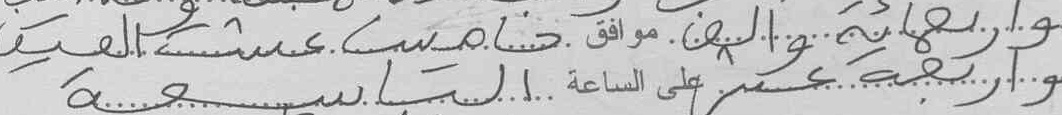 واربعمائة والف موافق خامس عشر الفين
واربعة عشر على الساعة التاسعة